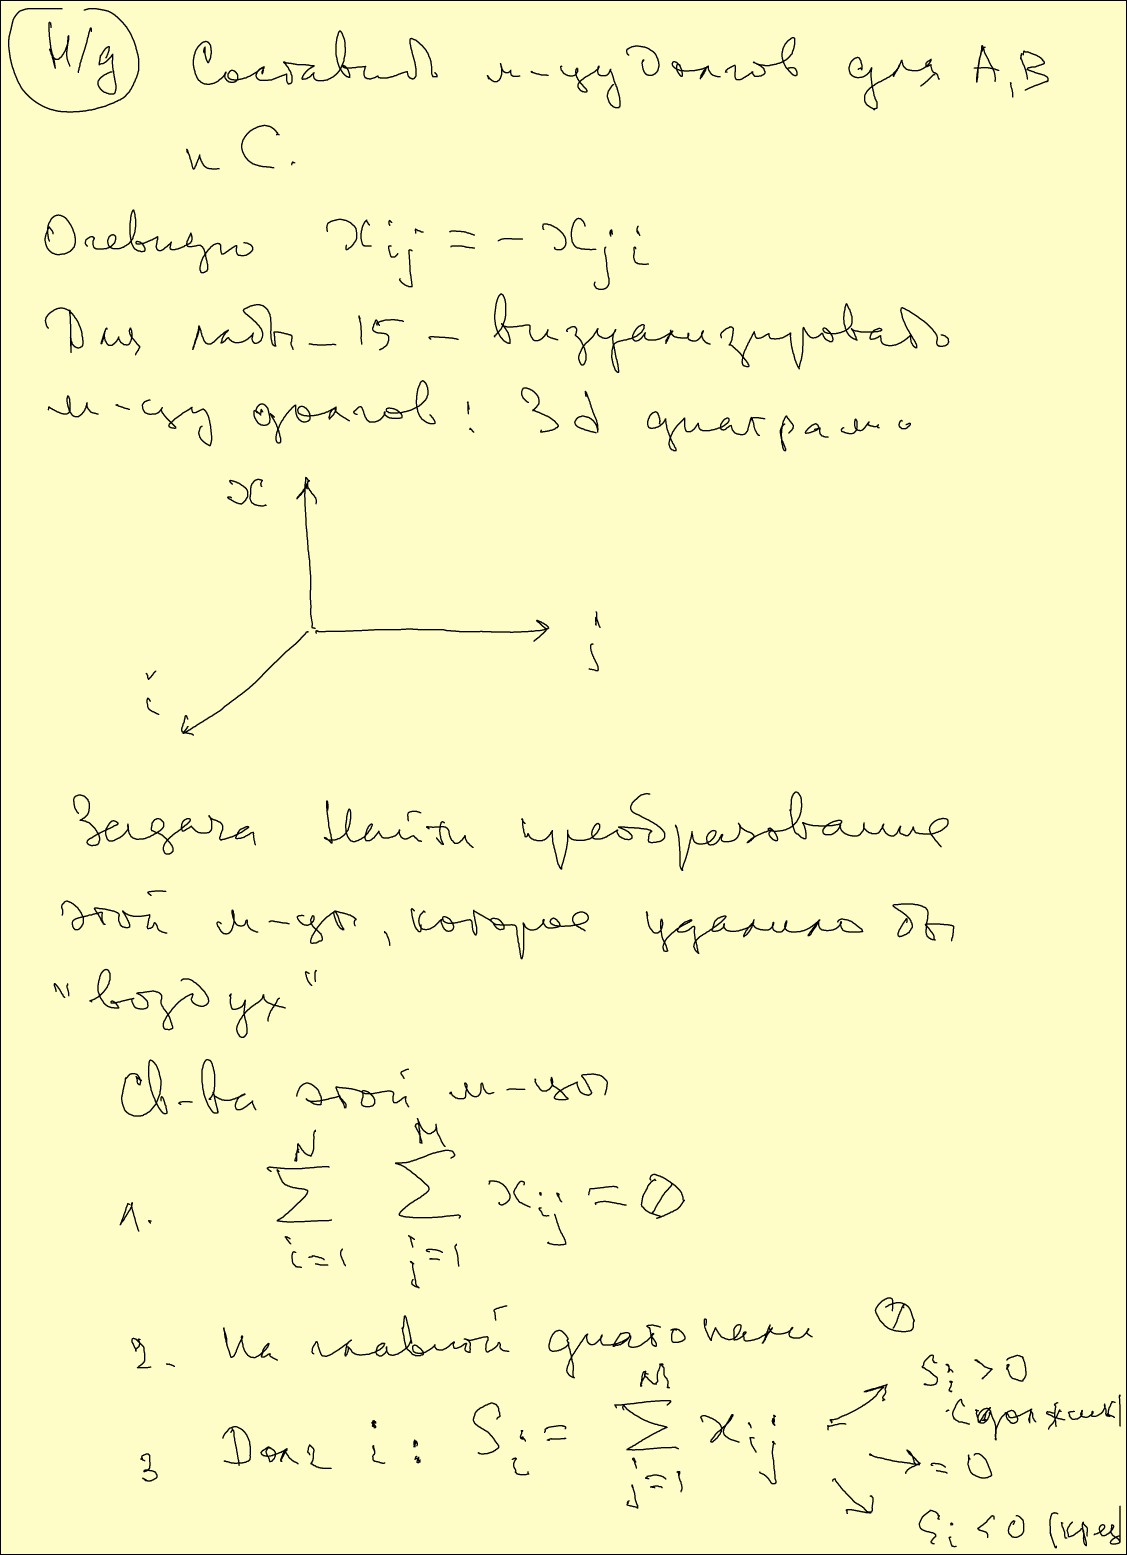 Н/д Составить м-цу Долгов для A, B
и C.
Очевидно x_ij = - x_ji
Для лабы - 15 - визуализировать
м-цу долгов: 3d диаграм.
x
j
i
Задача Найти преобразование
этой м-цы, которое удалило бы
"воздух"
Св-ва этой м-цы
1. \sum_{i=1}^{N} \sum_{j=1}^{M} x_ij = 0
2. На главной диагонали 0
S_i > 0
(должник)
3 Долг i: S_i = \sum_{j=1}^{M} x_ij
→ = 0
S_i < 0 (кред